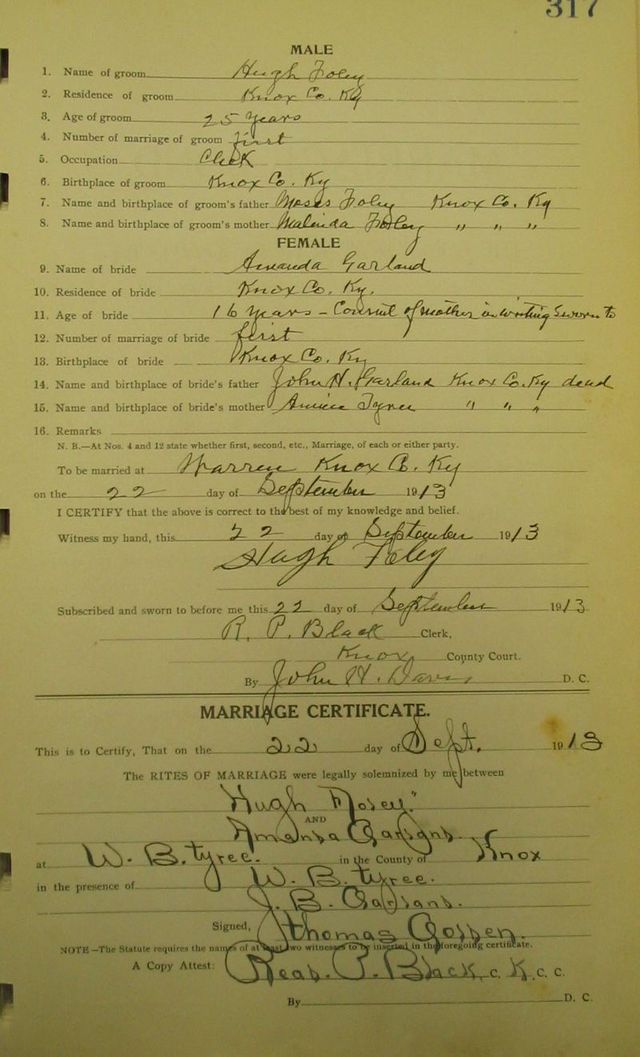 317
MALE
1. Name of groom Hugh Foley
2. Residence of groom Knox Co. Ky
3. Age of groom 25 years
4. Number of marriage of groom first
5. Occupation Clerk
6. Birthplace of groom Knox Co. Ky
7. Name and birthplace of groom's father Moses Foley Knox Co. Ky
8. Name and birthplace of groom's mother Malinda Foley " " "
FEMALE
9. Name of bride Amanda Garland
10. Residence of bride Knox Co. Ky.
11. Age of bride 16 years – Consent of mother in writing sworn to
12. Number of marriage of bride first
13. Birthplace of bride Knox Co. Ky
14. Name and birthplace of bride's father John H. Garland Knox Co. Ky dead
15. Name and birthplace of bride's mother " " "
16. Remarks
N. B.—At Nos. 4 and 12 state whether first, second, etc., Marriage, of each or either party.
To be married at Warren Knox Co. Ky
on the 22 day of September 1913
I CERTIFY that the above is correct to the best of my knowledge and belief.
Witness my hand, this 22 day of September 1913
Hugh Foley
Subscribed and sworn to before me this 22 day of September 1913
R. P. Black Clerk,
Knox County Court.
By John H. Davis D. C.
MARRIAGE CERTIFICATE.
This is to Certify, That on the 22 day of Sept. 1913
The RITES OF MARRIAGE were legally solemnized by me between
Hugh Fosey"
AND
Amansa Garsans
at W. B. tyree. in the County of Knox
in the presence of W. B. tyree.
J. B. Garsans.
Signed, thomas Gossen.
NOTE—The Statute requires the names of at least two witnesses to be inserted in the foregoing certificate.
A Copy Attest: Reas. P. Black C. K. C. C.
By D. C.